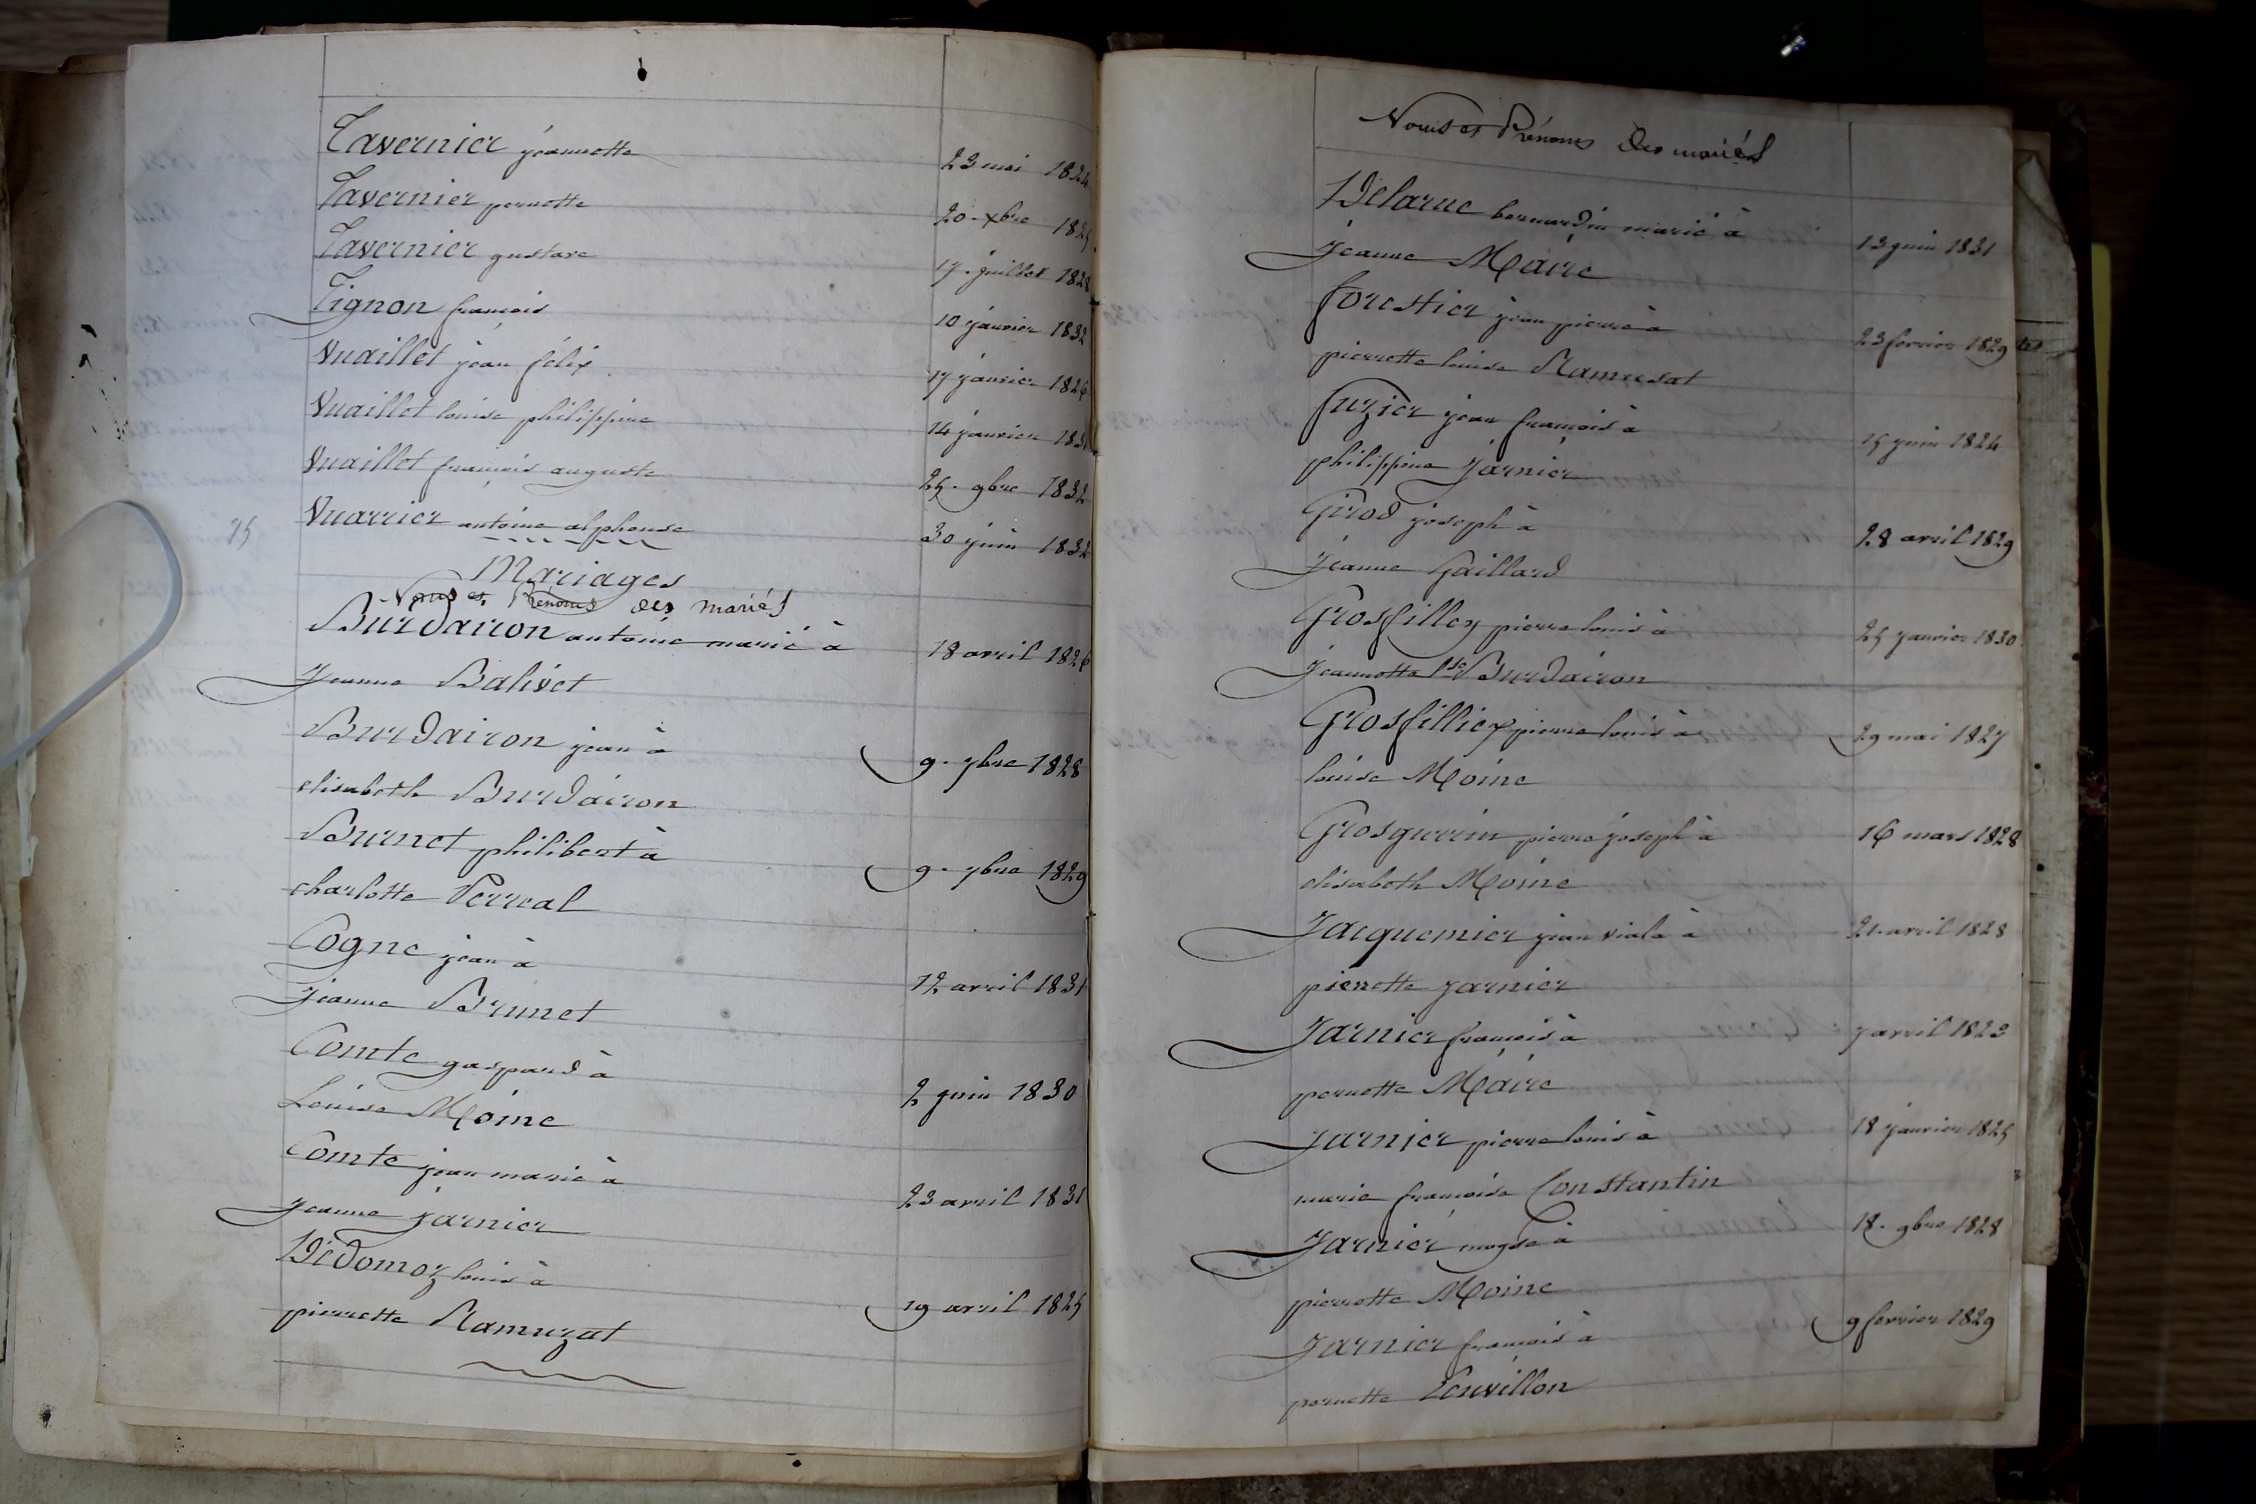 Tavernier jeannette 23 mai 1824
Tavernier pernette 20. xbre 1825
Tavernier gustave 17. juillet 1828
Tignon francois 10 janvier 1832
Vuaillet jean félix 17 janvier 1826
Vuaillet louise philippine 14 janvier 1831
Vuaillet francois auguste 25. 9bre 1832
75 Vuarrier antoine alphonse 30 juin 1832
Mariages
Noms et Prénoms des mariés
Burdairon antoine marié à 18 avril 1826
Jeanne Balivet
Burdairon jean à 9. 7bre 1828
elisabeth Burdairon
Burnet philibert à 9. 7bre 1829
charlotte Perreal
Cogne jean à 12 avril 1831
Jeanne Brunet
Comte gaspard à 2 juin 1830
Louise Moine
Comte jean marie à 23 avril 1831
Jeanne Jarnier
Dédomoz louis à 19 avril 1825
pierrette Ramuzat
Noms et Prénoms des mariés
Delarue bernardin marié à 13 juin 1831
Jeanne Maire
forestier jean pierre à 23 fevrier 1829
pierrette louise Ramusat
fuzier jean francois à 15 juin 1824
philippine Jarnier
Grod joseph à 28 avril 1829
Jeanne Gaillard
Grosfilley pierre louis à 25 janvier 1830
Jeannette Lse Burdairon
Grosfilliex pierre louis à 29 mai 1827
louise Moine
Grosgurin pierre joseph à 16 mars 1828
elisabeth Moine
Jacquemier jean viala à 21. avril 1828
pierrette Jarnier
Jarnier francois à 7 avril 1823
pernette Maire
Jarnier pierre louis à 18 janvier 1825
marie francoise Constantin
Jarnier moyse à 18. 9bre 1828
pierrette Moine
Jarnier francois à 9 fevrier 1829
pernette Louvillon